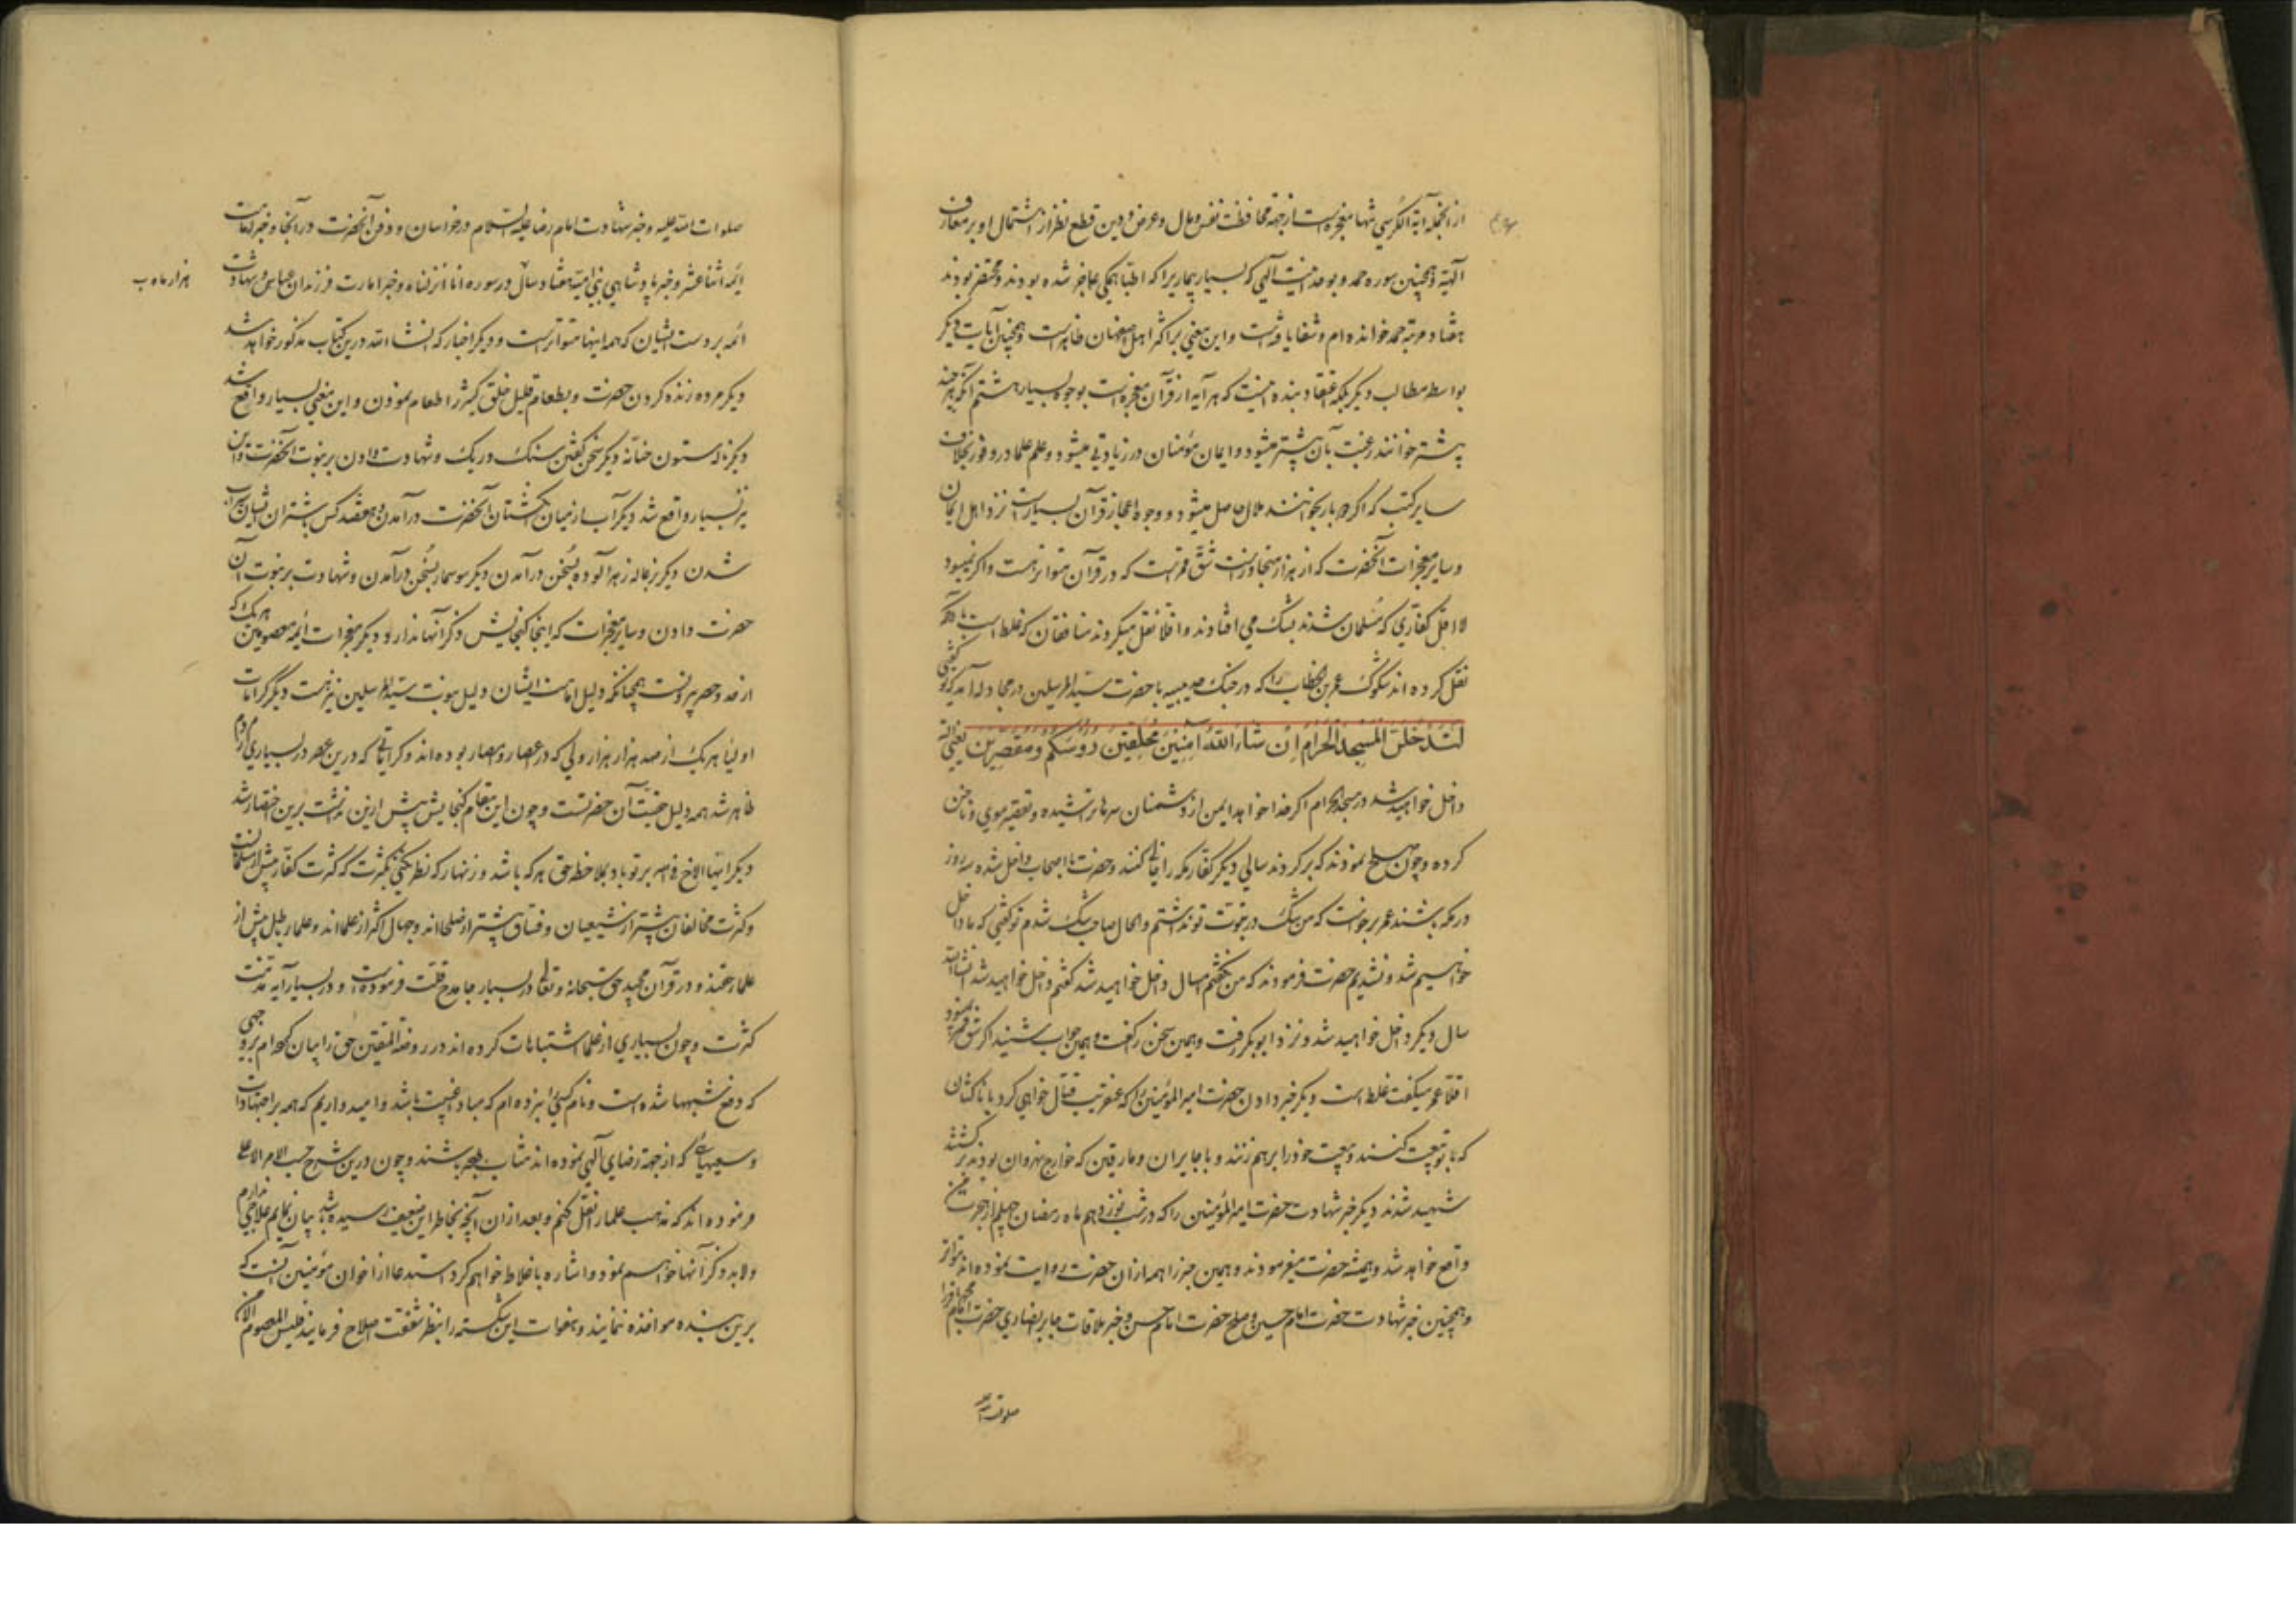 ازانجمله آیة الکرسی تنها معجزه ایست از جهة محافظت نفس و مال و عرض و دین قطع نظر از اشتمال او بر معارف
الهیه و همچنین سوره حمد و بوحدانیت الهی که بسیار بیماریرا که اطبا همگی عاجز شده بودند و محتضر بودند
هفتاد مرتبه حمد خوانده ام و شفا یافته است و این معنی بر اکثر اهل اصفهان ظاهر است و همچنین آیات دیگر
بواسطه مطالب دیگر بلکه اعتقاد بنده اینست که هر آیه از قرآن معجزه ایست بوجوه بسیار هشتم آنکه هر چند
بیشتر خوانند رغبت بآن بیشتر میشود و ایمان مؤمنان در زیادتی میشود و علم علما در وفور بخلاف
سایر کتب که اگر دو بار بخوانند ملال حاصل میشود و وجوه اعجاز قرآن بسیار است نزد اهل ایمان
و سایر معجزات آنحضرت که از هزار متجاوز است شق قمر است که در قرآن متواتر است و اگر نمیبود
لااقل کفاری که مسلمان شدند بشک می افتادند و اقلا نقل میکردند منافقان که غلط است با آنکه
نقل کرده اند شکوک عمر بن الخطاب را که در جنک حدیبیه با حضرت سید المرسلین در مجادله آمد که تو گفتی
لَتَدْخُلُنَّ الْمَسْجِدَ الْحَرَامَ اِنْ شَاءَ اللّٰهُ آمِنِينَ مُحَلِّقِينَ رُؤُسَكُمْ وَمُقَصِّرِينَ یعنی البته
داخل خواهید شد در مسجد الحرام اگر خدا خواهد ایمن از دشمنان سرها تراشیده و تقصیر موی و ناخن
کرده و چون صلح نمودند که برگردند سالی دیگر کفار مکه را خالی کنند و حضرت با اصحاب داخل شده سه روز
در مکه باشند عمر برخواست که من شک در نبوت تو نداشتم و الحال صاحب شک شدم تو گفتی که ما داخل
خواهیم شد و نشدیم حضرت فرمودند که من نگفتم امسال داخل خواهید شد گفتم داخل خواهید شد انشاالله
سال دیگر داخل خواهید شد و نزد ابوبکر رفت و همین سخن را گفت و همین جواب شنید اگر شق قمر نمیبود
اقلا عمر میگفت غلط است دیگر خبر دادن حضرت امیر المؤمنین را که عنقریب قتال خواهی کرد با ناکثان
که با تو بیعت کنند و بیعت خود را برهم زنند و با جایران و مارقین که خوارج نهروان بودند کشته
شهید شدند دیگر خبر شهادت حضرت امیر المؤمنین را که در شب نوزدهم ماه رمضان چهلم از هجرت من
واقع خواهد شد و همیشه حضرت میفرمودند و همین خبر را همه ازان حضرت روایت نموده اند متواتر
و همچنین خبر شهادت حضرت امام حسین و صلح حضرت امام حسن و خبر ملاقات جابر انصاری حضرت امام محمد باقر را
صلوات الله
صلوات الله علیه و خبر شهادت امام رضا علیه السلام در خراسان و دفن آنحضرت در آنجا و خبر امامت
ائمه اثنا عشر و خبر پادشاهی بنی امیه هفتاد سال و در سوره انا انزلناه و خبر امارت فرزندان عباس و شهادت
هزار ماه ب
ائمه بر دست ایشان که همه اینها متواتر است و دیگر اخبار که انشاالله درین کتاب مذکور خواهد شد
دیگر مرده زنده کردن حضرت و بطعام قلیل خلق کثیر را طعام نمودن و این معنی بسیار واقع شد
دیگر ناله ستون حنانه دیگر سخن گفتن سنک و ریک و شهادت دادن بر نبوت آنحضرت و این
نیز بسیار واقع شد دیگر آب از میان انگشتان آنحضرت در آمدن و هفتصد کس با شتران ایشان سیراب
شدن دیگر بزغاله زهرآلوده بسخن در آمدن دیگر سوسمار بسخن در آمدن و شهادت بر نبوت آن
حضرت دادن و سایر معجزات که اینجا گنجایش ذکر آنها ندارد و دیگر معجزات ائمه معصومین که هریک
از حد و حصر بیرونست همچنانکه دلیل امامت ایشان دلیل نبوت سید المرسلین نیز هست دیگر کرامات
اولیا هریک از صد هزار هزار ولی که در اعصار و امصار بوده اند و کراماتی که درین عصر در بسیاری از مردم
ظاهر شد همه دلیل حقیت آن حضرتست و چون این مقام گنجایش بیش ازین نداشت برین اختصار شد
دیگر ایها الاخ فی الله بر تو باد بملاحظه حق هر که باشد و زنهار که نظر نکنی بکثرت که کثرت کفار بیش از مسلمانانست
و کثرت مخالفان بیشتر از شیعیان و فساق بیشتر از صلحا اند و جهال اکثر از علما اند و علماء باطل بیش از
علماء حقند و در قرآن مجید حق سبحانه و تعالی در بسیار جا مدح قلت فرموده است و در بسیار آیه مذمت
کثرت و چون بسیاری از علما اشتباهات کرده اند در روضة المتقین حق را بیان کرده ام بر وجهی
که دفع شبهها شده است و نام کسی را نبرده ام که مبادا غیبت باشد و امیدواریم که همه بر اجتهادات
و سعیهای که از جهة رضای الهی نموده اند مثاب باشند و چون درین شرح حسب الامر الاعلی
فرموده اند که مذهب علما را نقل کنم و بعد از ان آنچه بخاطر این ضعیف رسیده باشد بیان نمایم علاجی ندارم
ولابد ذکر آنها خواهم نمود و اشاره باغلاط خواهم کرد استدعا از اخوان مؤمنین آنست که
برین بنده مواخذه ننمایند و هفوات این شکسته را بنظر شفقت اصلاح فرمایند فلیس المعصوم الا من